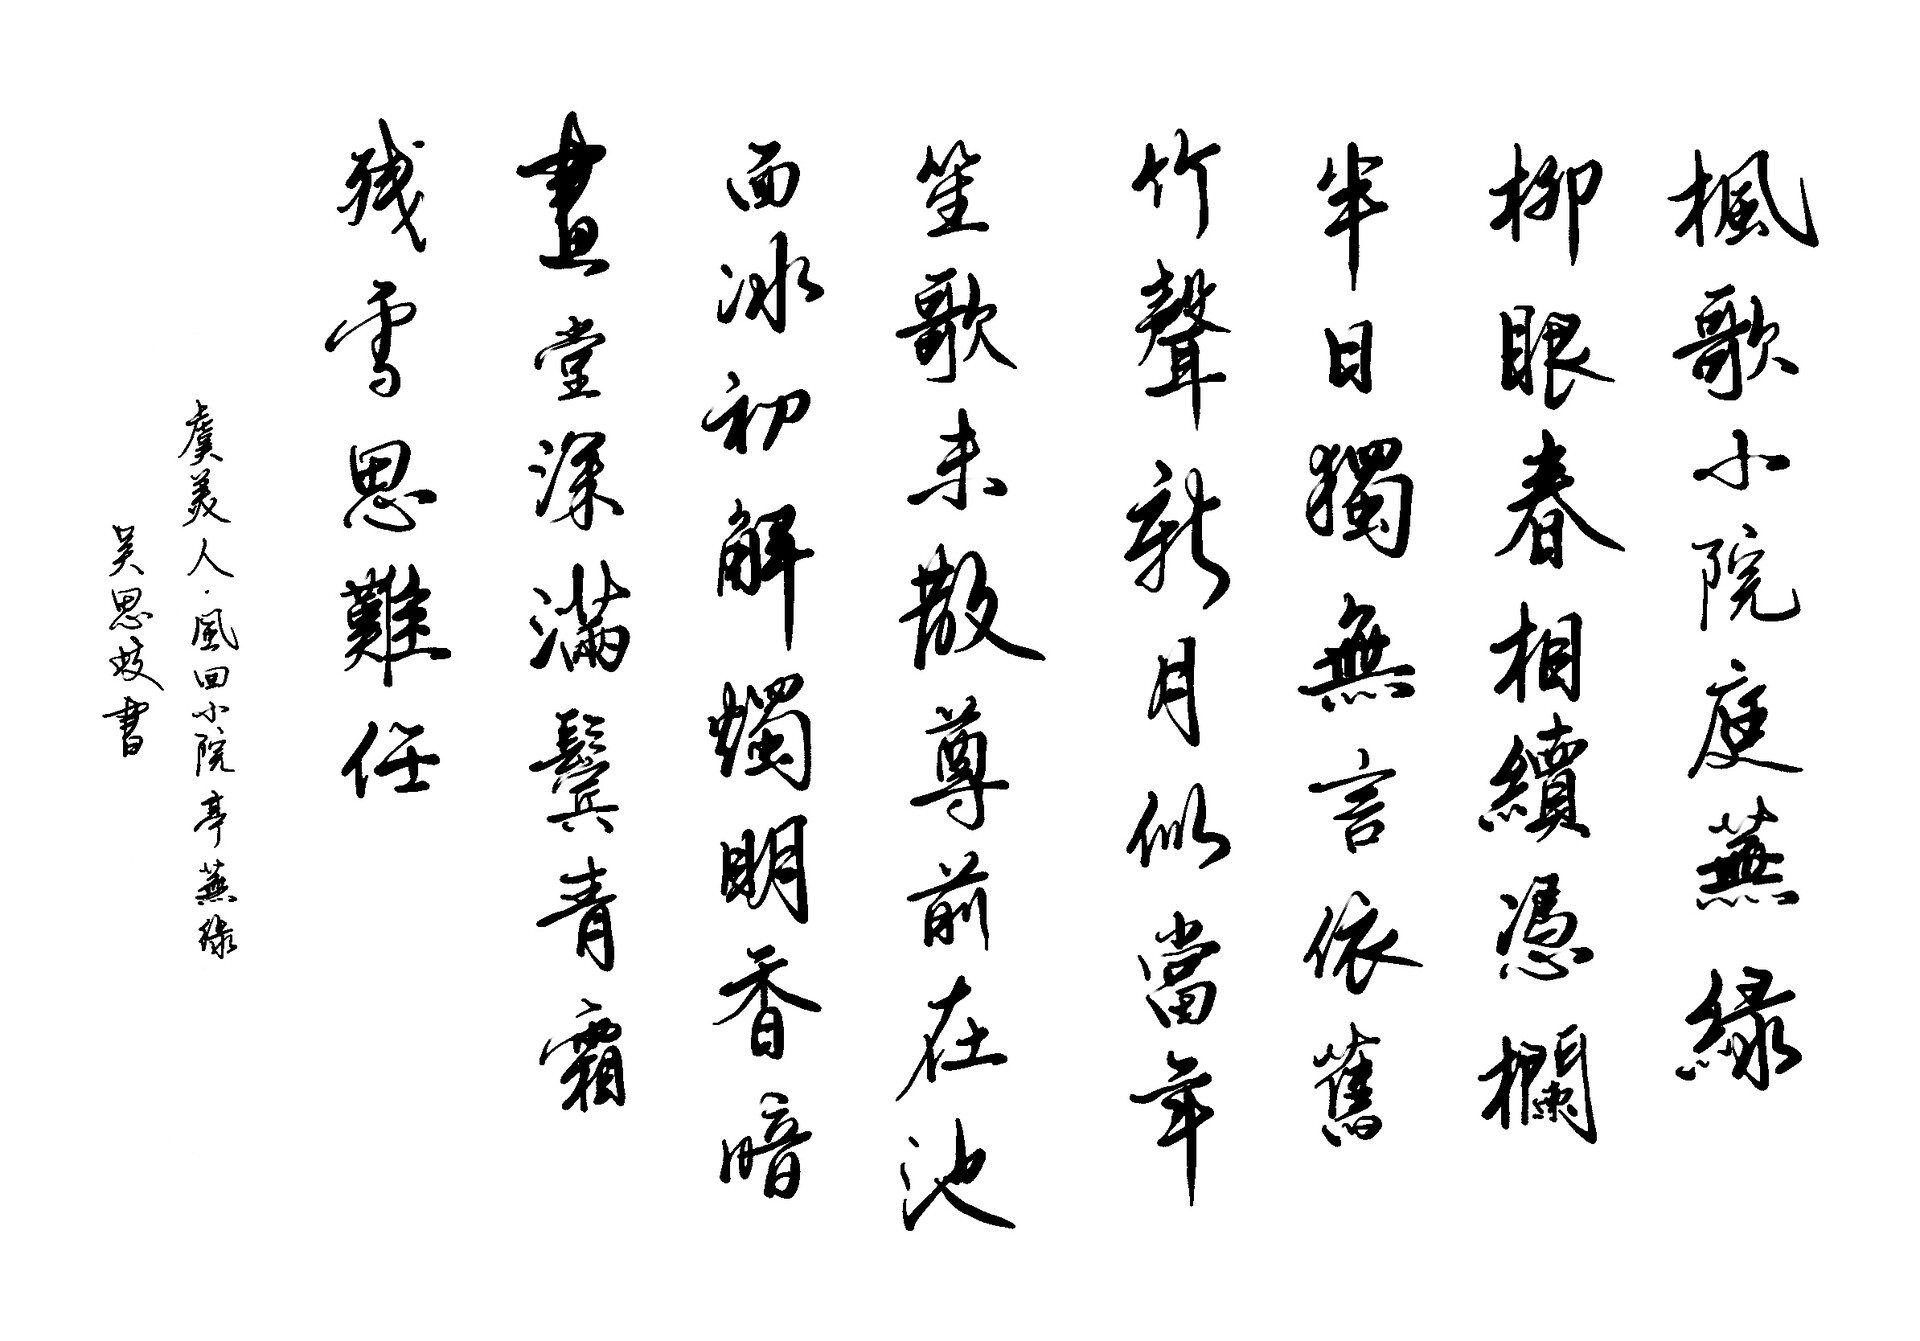 楓歌小院庭蕪綠
柳眼春相續憑欄
半日獨無言依舊
竹聲新月似當年
笙歌未散尊前在池
面冰初解燭明香暗
畫堂深滿鬢青霜
残雪思難任
虞美人·風回小院亭蕪綠
吴思蚑書